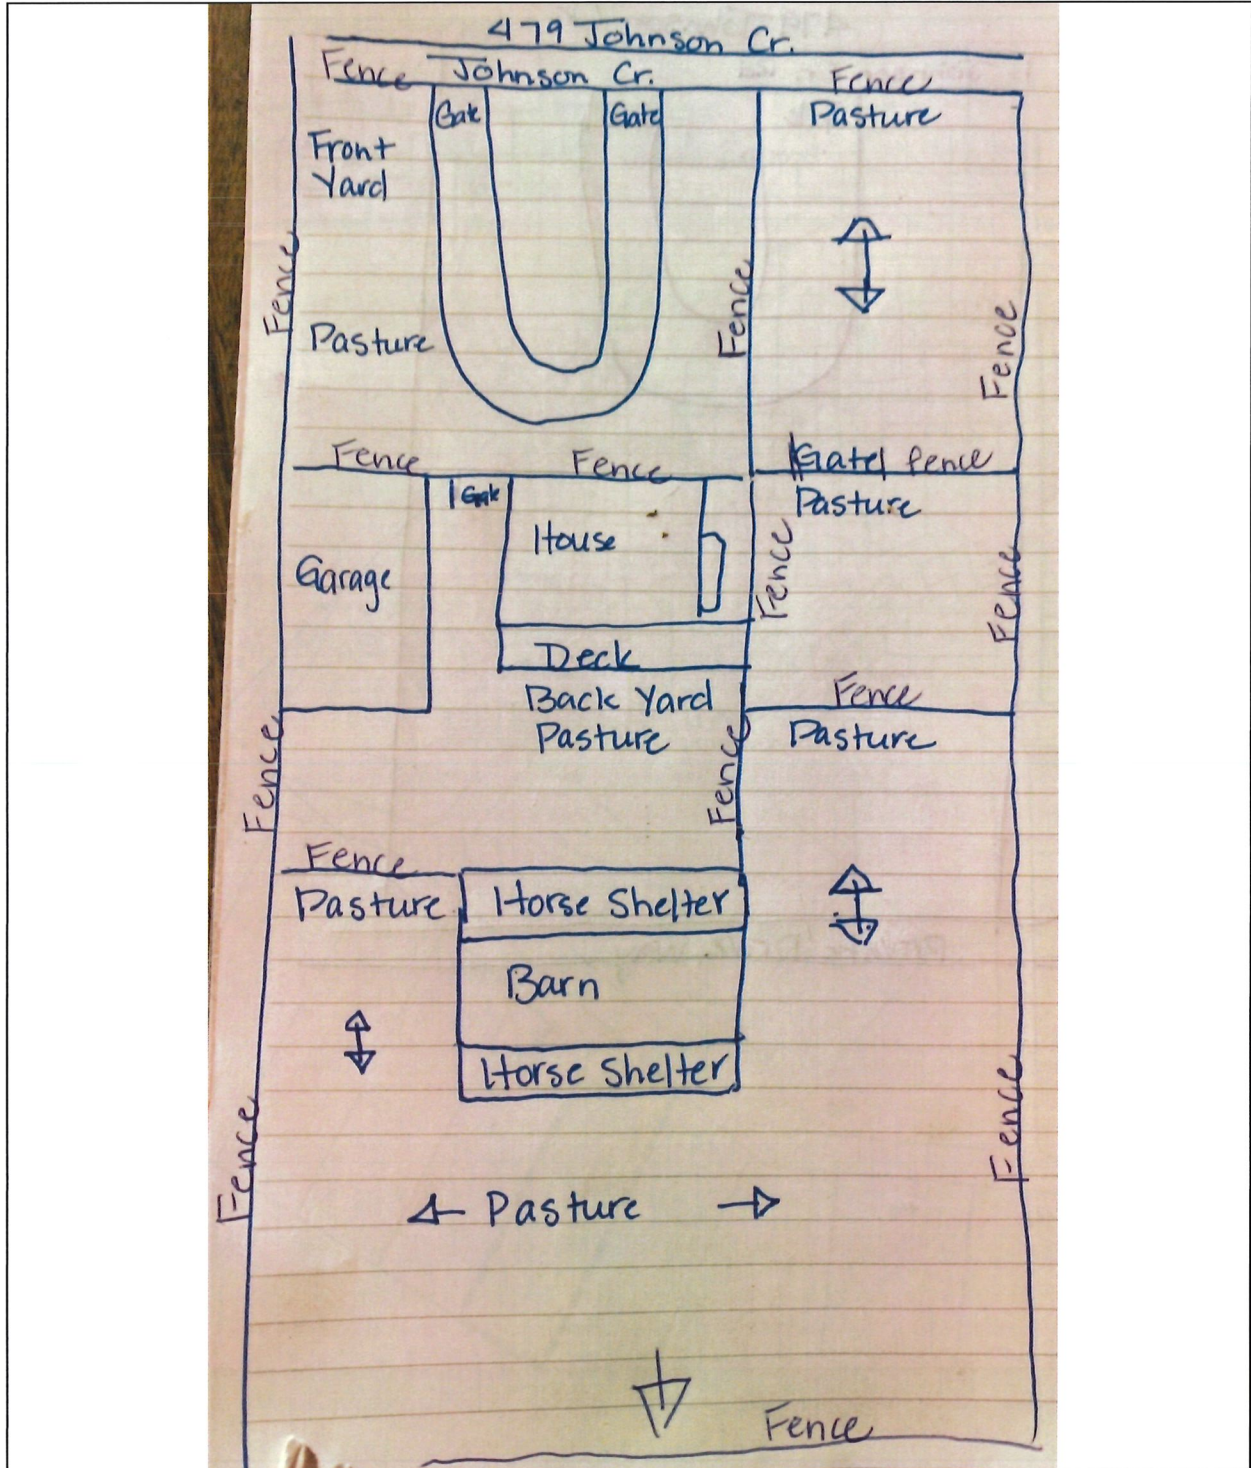 479 Johnson Cr.
Fence Johnson Cr. Fence
Gate Gate Pasture
Front
Yard
Fence
Fence
Fence
Pasture
Fence Fence Gate fence
Gate Pasture
House
Fence
Garage
Fence
Deck
Back Yard Fence
Pasture Pasture
Fence
Fence
Fence
Pasture Horse Shelter
Barn
Horse Shelter
Fence
Fence
Pasture
Fence